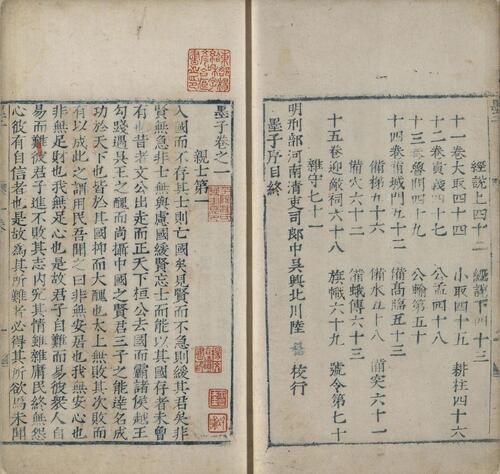 經說上四十二 經說下四十三
十一卷大取四十四 小取四十五 耕柱四十六
十二卷貴義四十七 公孟四十八
十三卷魯問四十九 公輸第五十
十四卷備城門五十二 備高臨五十三
備梯五十六 備水五十八 備突六十一
備穴六十二 備蛾傅六十三
十五卷迎敵祠六十八 旗幟六十九 號令第七十
雜守七十一
明刑部河南清吏司郎中吳興北川陸 校行
墨子序目終
墨子卷之一
親士第一
入國而不存其士則亡國矣見賢而不急則緩其君矣非
賢無急非士無與慮國緩賢忘士而能以其國存者未曾
有也昔者文公出走而正天下桓公去國而霸諸侯越王
勾踐遇吳王之醜而尚攝中國之賢君三子之能達名成
功於天下也皆於其國抑而大醜也太上無敗其次敗而
有以成此之謂用民吾聞之曰非無安居也我無安心也
非無足財也我無足心也是故君子自難而易彼眾人自
易而難彼君子進不敗其志內究其情雖雜庸民終無怨
心彼有自信者也是故為其所難者必得其所欲焉未聞